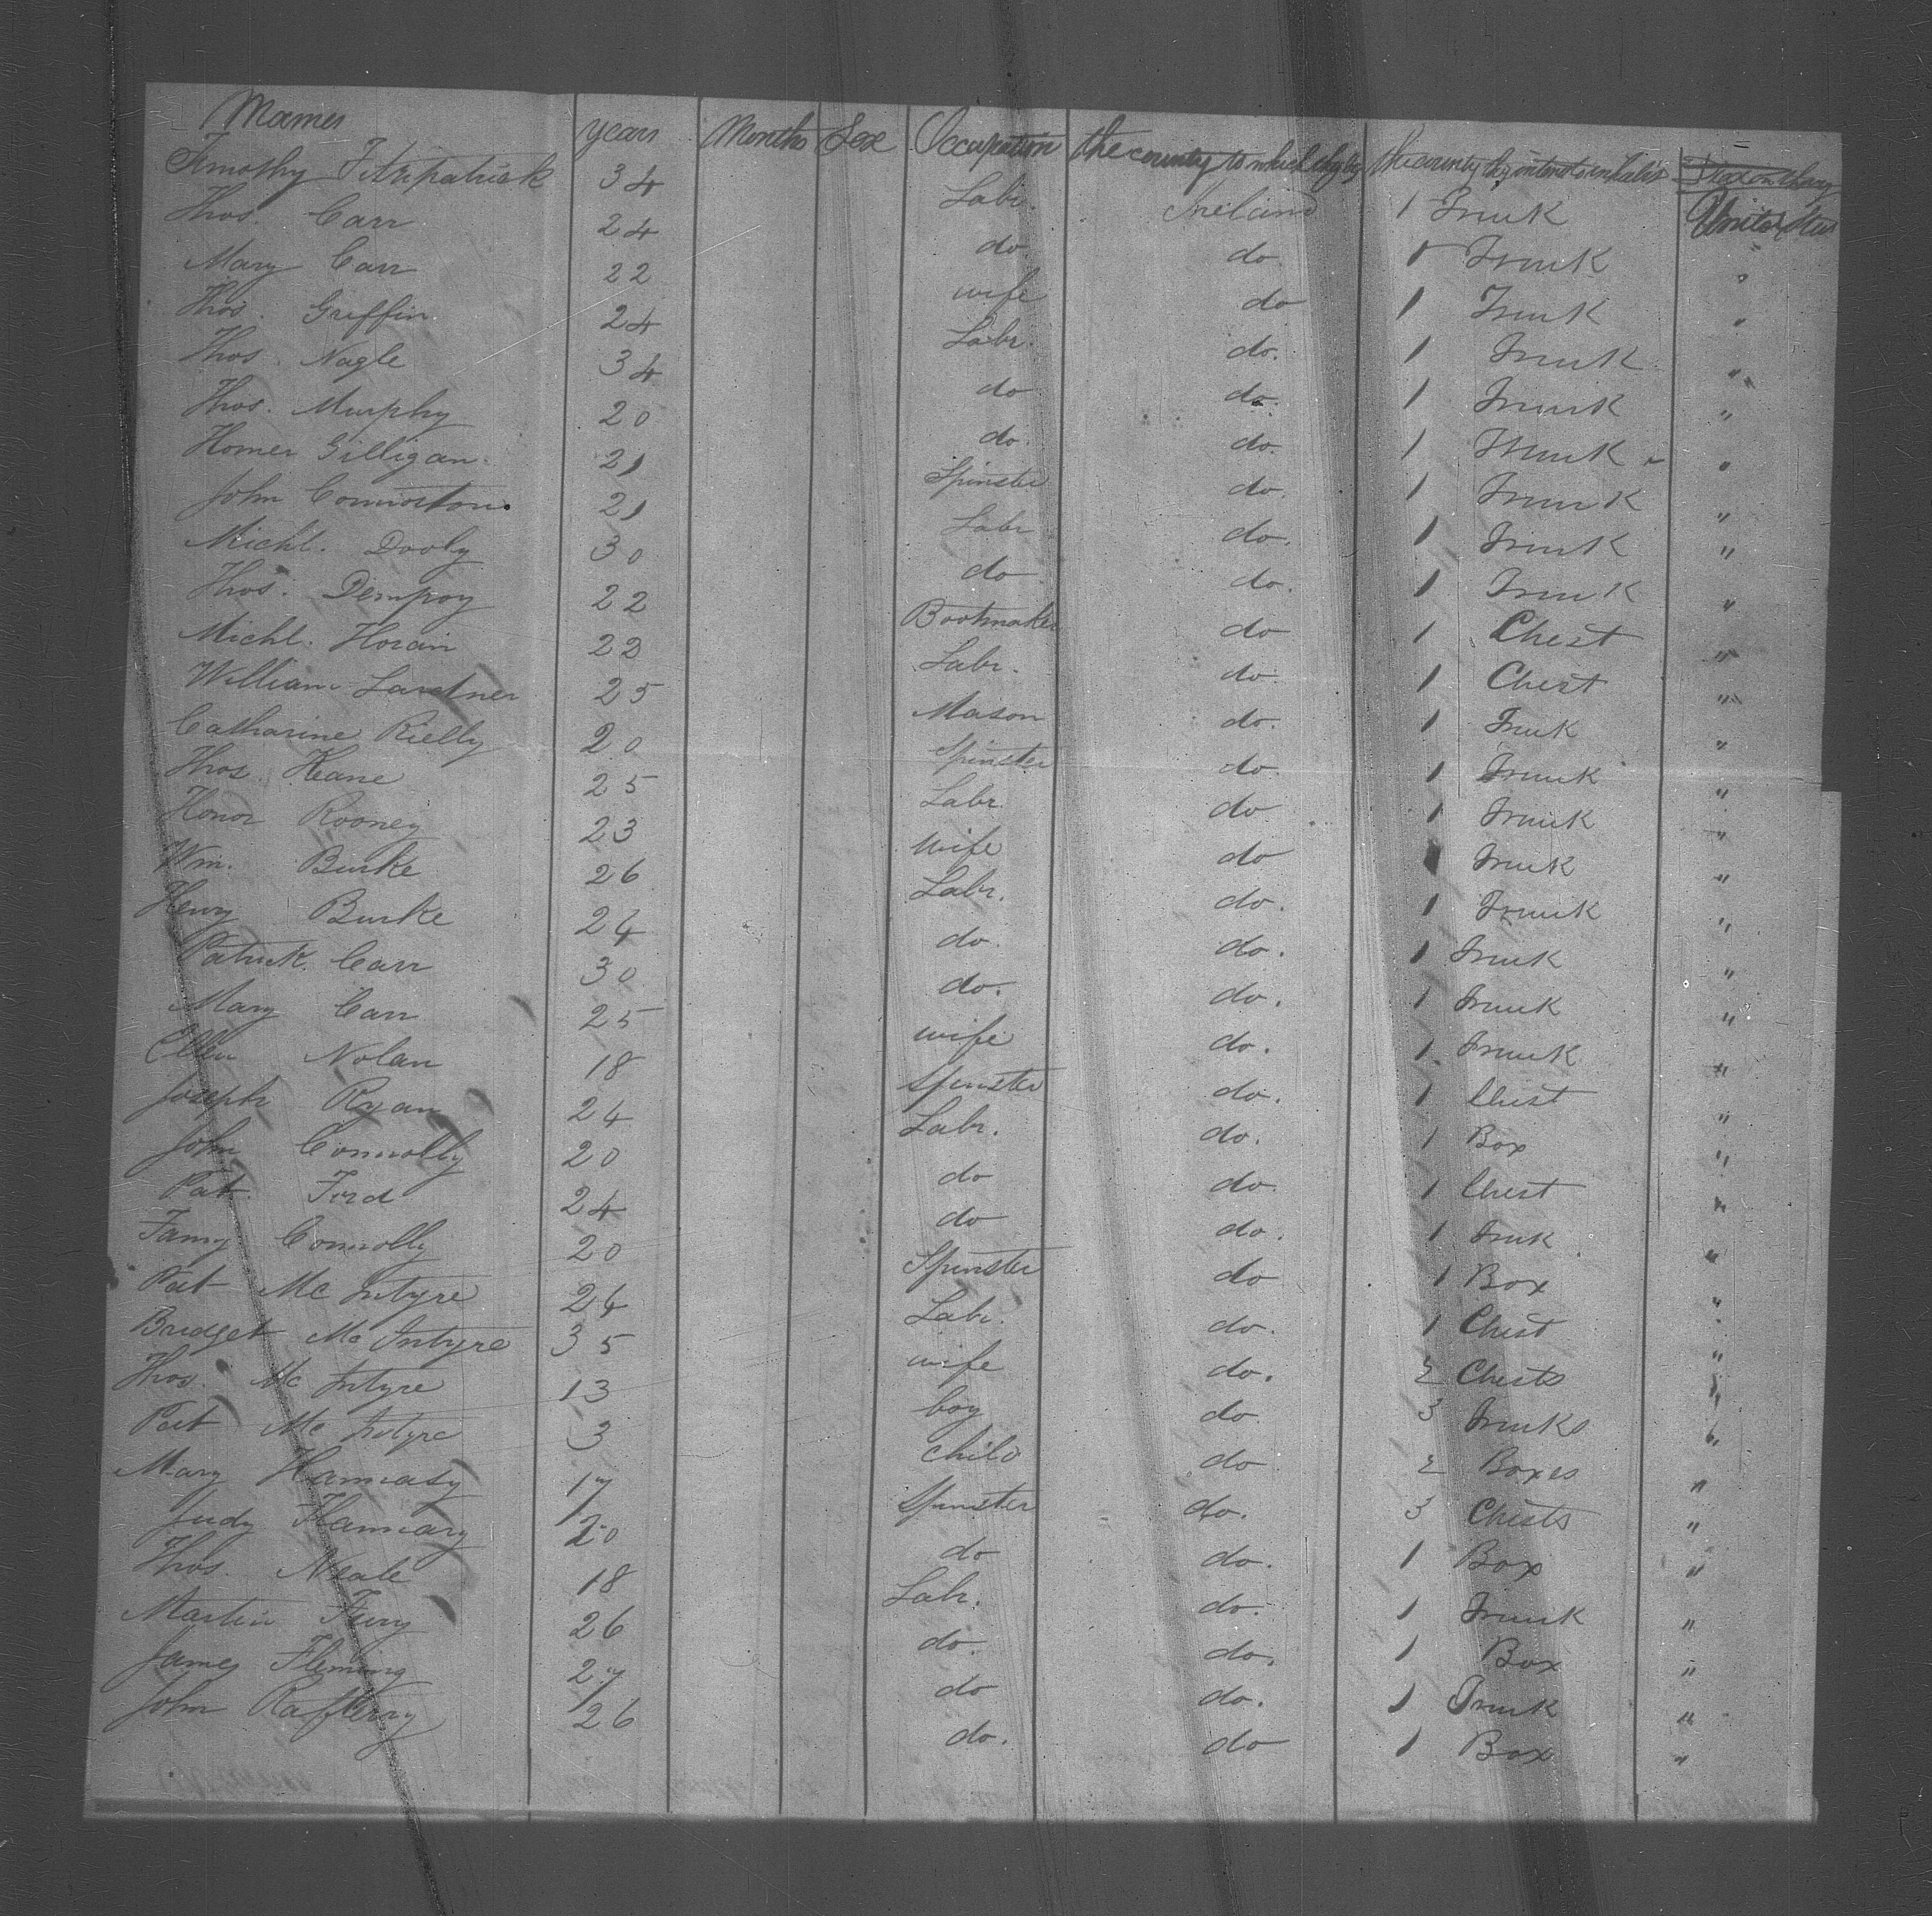 Names years Months Sex Occupation the country to which they the country they intend to inhabit
Timothy Fitzpatrick 34 Labr. Ireland 1 Trunk United
Thos. Carr 24 do. do. 1 Trunk "
Mary Carr 22 wife do 1 Trunk "
Thos. Griffin 24 Labr. do. 1 Trunk "
Thos. Nagle 34 do do. 1 Trunk "
Thos. Murphy 20 do. do. 1 Trunk "
Homer Gilligan 21 Spinster do. 1 Trunk "
John 21 Labr do. 1 Trunk "
Michl. Dooly 30 do do. 1 Trunk "
Thos. Dempsy 22 Bootmaker do 1 Chest "
Michl. Horain 22 Labr. do. 1 Chest "
William Lardner 25 Mason do. 1 Trunk "
Catharine Rielly 20 Spinster do. 1 Trunk "
Thos. Keane 25 Labr. do 1 Trunk "
Honor Rooney 23 wife do 1 Trunk "
Wm. Burke 26 Labr. do. 1 Trunk "
Henry Burke 24 do. do. 1 Trunk "
Patrick Carr 30 do. do. 1 Trunk "
Mary Carr 25 wife do. 1 Trunk "
Ellen Nolan 18 Spinster do. 1 Chest "
Joseph Ryan 24 Labr. do. 1 Box "
John Connolly 20 do do. 1 Chest "
Pat. Ford 24 do do. 1 Trunk "
Fanny Connolly 20 Spinster do 1 Box "
Pat Mc Intyre 24 Labr. do. 1 Chest "
Bridget Mc Intyre 35 wife do. 2 Chests "
Thos. Mc Intyre 13 boy do. 3 Trunks "
Pat Mc Intyre 3 child do 2 Boxes "
Mary 17 Spinster do. 3 Chests "
Judy 20 do do. 1 Box "
Thos. Neale 18 Labr. do. 1 Trunk "
Martin Fury 26 do. do. 1 Box "
James Fleming 27 do do. 1 Trunk "
John Rafferty 26 do. do 1 Box "